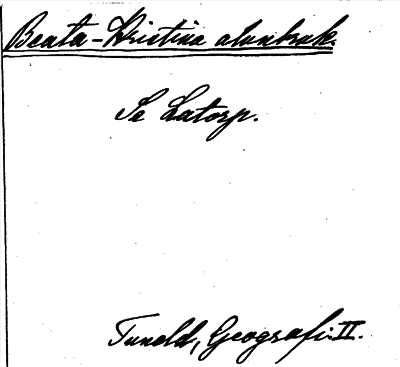 Beata-Kristina alunbruk.
Se Latorp.
Tuneld, Geografi II.